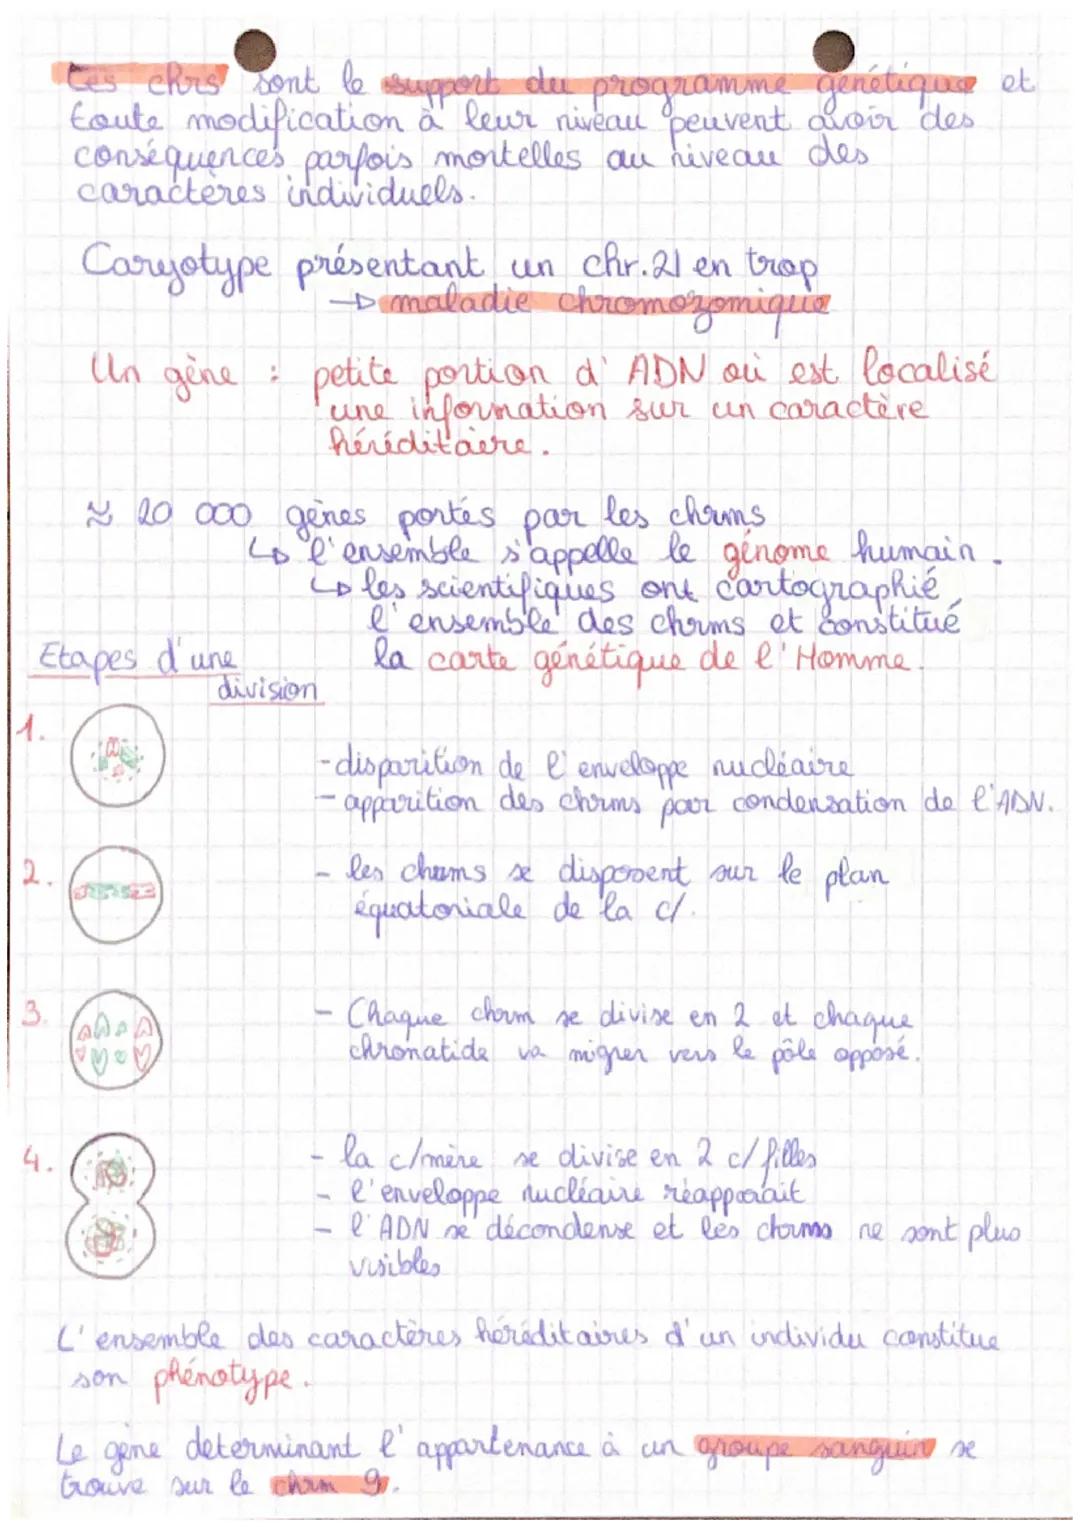 Les chrs sont le support du programme génétique et
toute modification à leur niveau peuvent avoir des
conséquences parfois mortelles au niveau des
caractères individuels.
Caryotype présentant un chr.21 en trop
→ maladie chromozomique
Un gène : petite portion d'ADN où est localisé
une information sur un caractère
héréditaire.
≈ 20 000 gènes portés par les chrms
↳ l'ensemble s'appelle le génome humain.
↳ les scientifiques ont cartographié
l'ensemble des chrms et constitué
la carte génétique de l'Homme.
Etapes d'une
division
1.
- disparition de l'enveloppe nucléaire
- apparition des chrms par condensation de l'ADN.
2.
- les chrms se disposent sur le plan
équatoriale de la c/.
3.
- Chaque chrm se divise en 2 et chaque
chromatide va migrer vers le pôle opposé.
4.
- la c/mère se divise en 2 c/filles
- l'enveloppe nucléaire réapparait
- l'ADN se décondense et les chrms ne sont plus
visibles
L'ensemble des caractères héréditaires d'un individu constitue
son phénotype.
Le gène déterminant l'appartenance à un groupe sanguin se
trouve sur le chrm 9.